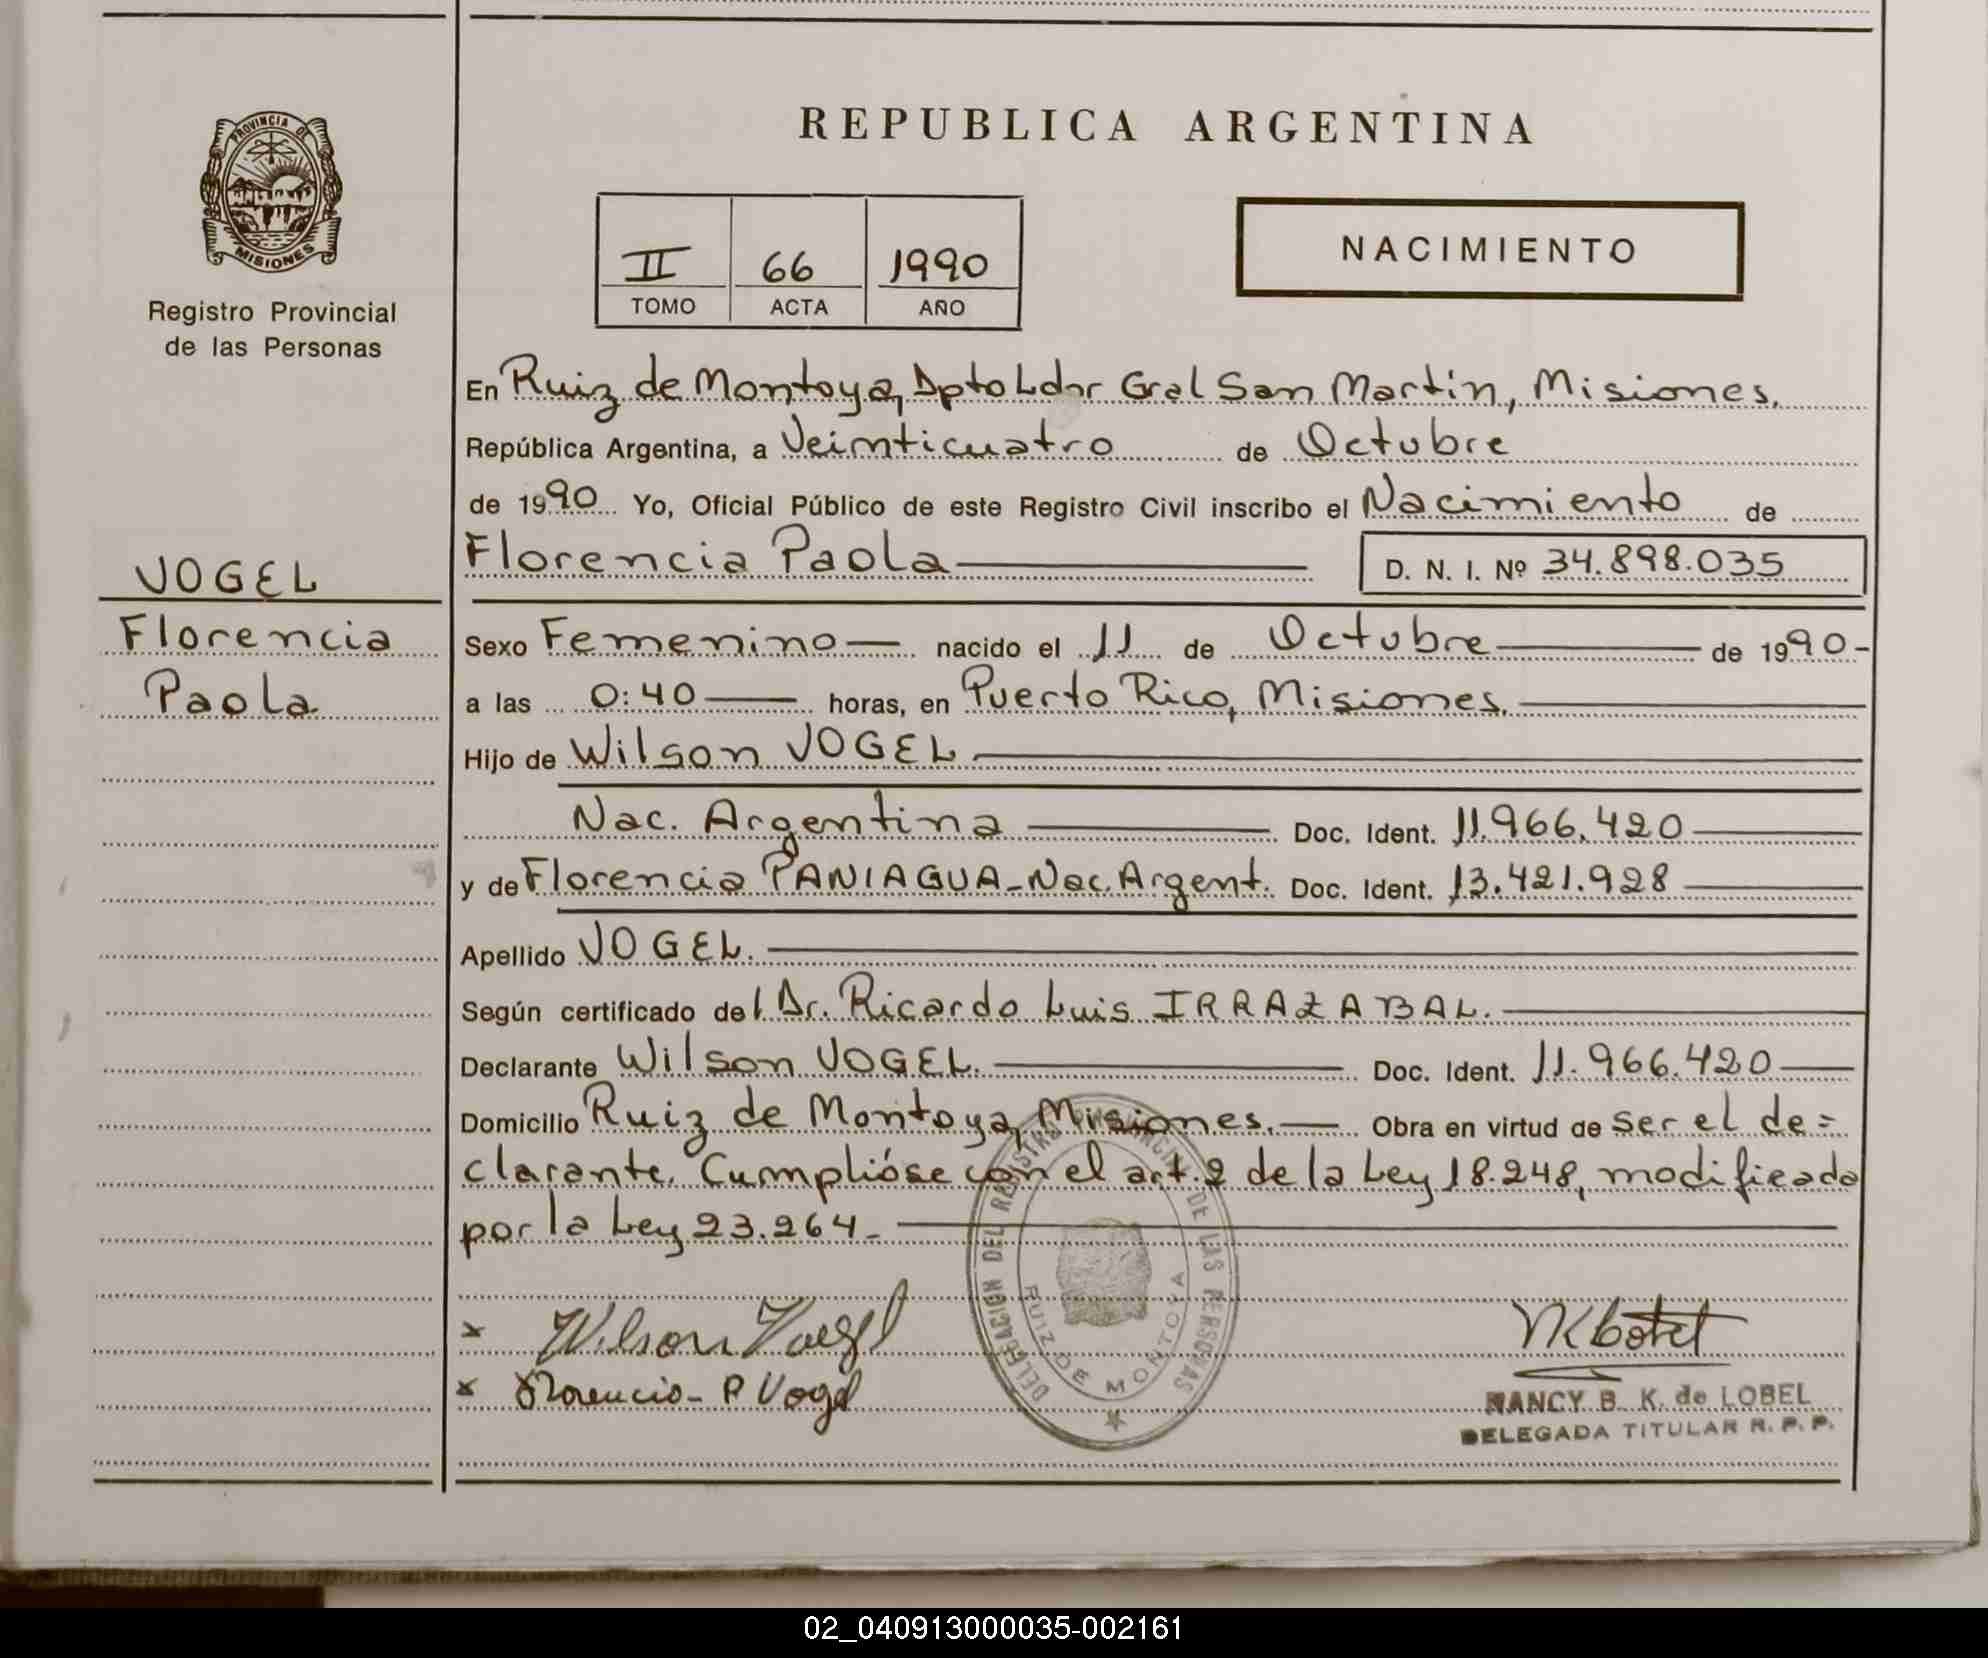 REPUBLICA ARGENTINA
PROVINCIA DE
MISIONES
Registro Provincial
de las Personas
II 66 1990
TOMO ACTA AÑO
NACIMIENTO
En Ruiz de Montoya, Dpto Ldor Gral San Martin, Misiones.
República Argentina, a Veinticuatro de Octubre
de 1990 Yo, Oficial Público de este Registro Civil inscribo el Nacimiento de
Florencia Paola D. N. I. Nº 34.898.035
VOGEL
Florencia
Paola
Sexo Femenino nacido el 11 de Octubre de 1990-
a las 0:40 horas, en Puerto Rico, Misiones.
Hijo de Wilson VOGEL
Nac. Argentina Doc. Ident. 11.966.420
y de Florencia PANIAGUA-Nac. Argent. Doc. Ident. 13.421.928
Apellido VOGEL.
Según certificado del Dr. Ricardo Luis IRRAZABAL.
Declarante Wilson VOGEL. Doc. Ident. 11.966.420
Domicilio Ruiz de Montoya, Misiones. Obra en virtud de ser el de=
clarante. Cumplióse con el art. 2 de la Ley 18.248, modificada
por la Ley 23.264-
DELEGACION DEL REGISTRO PROVINCIAL DE LAS PERSONAS
RUIZ DE MONTOYA
x Wilson Voegl
x Florencia-P Vogel
NANCY B. K. de LOBEL
DELEGADA TITULAR R. P. P.
02_040913000035-002161